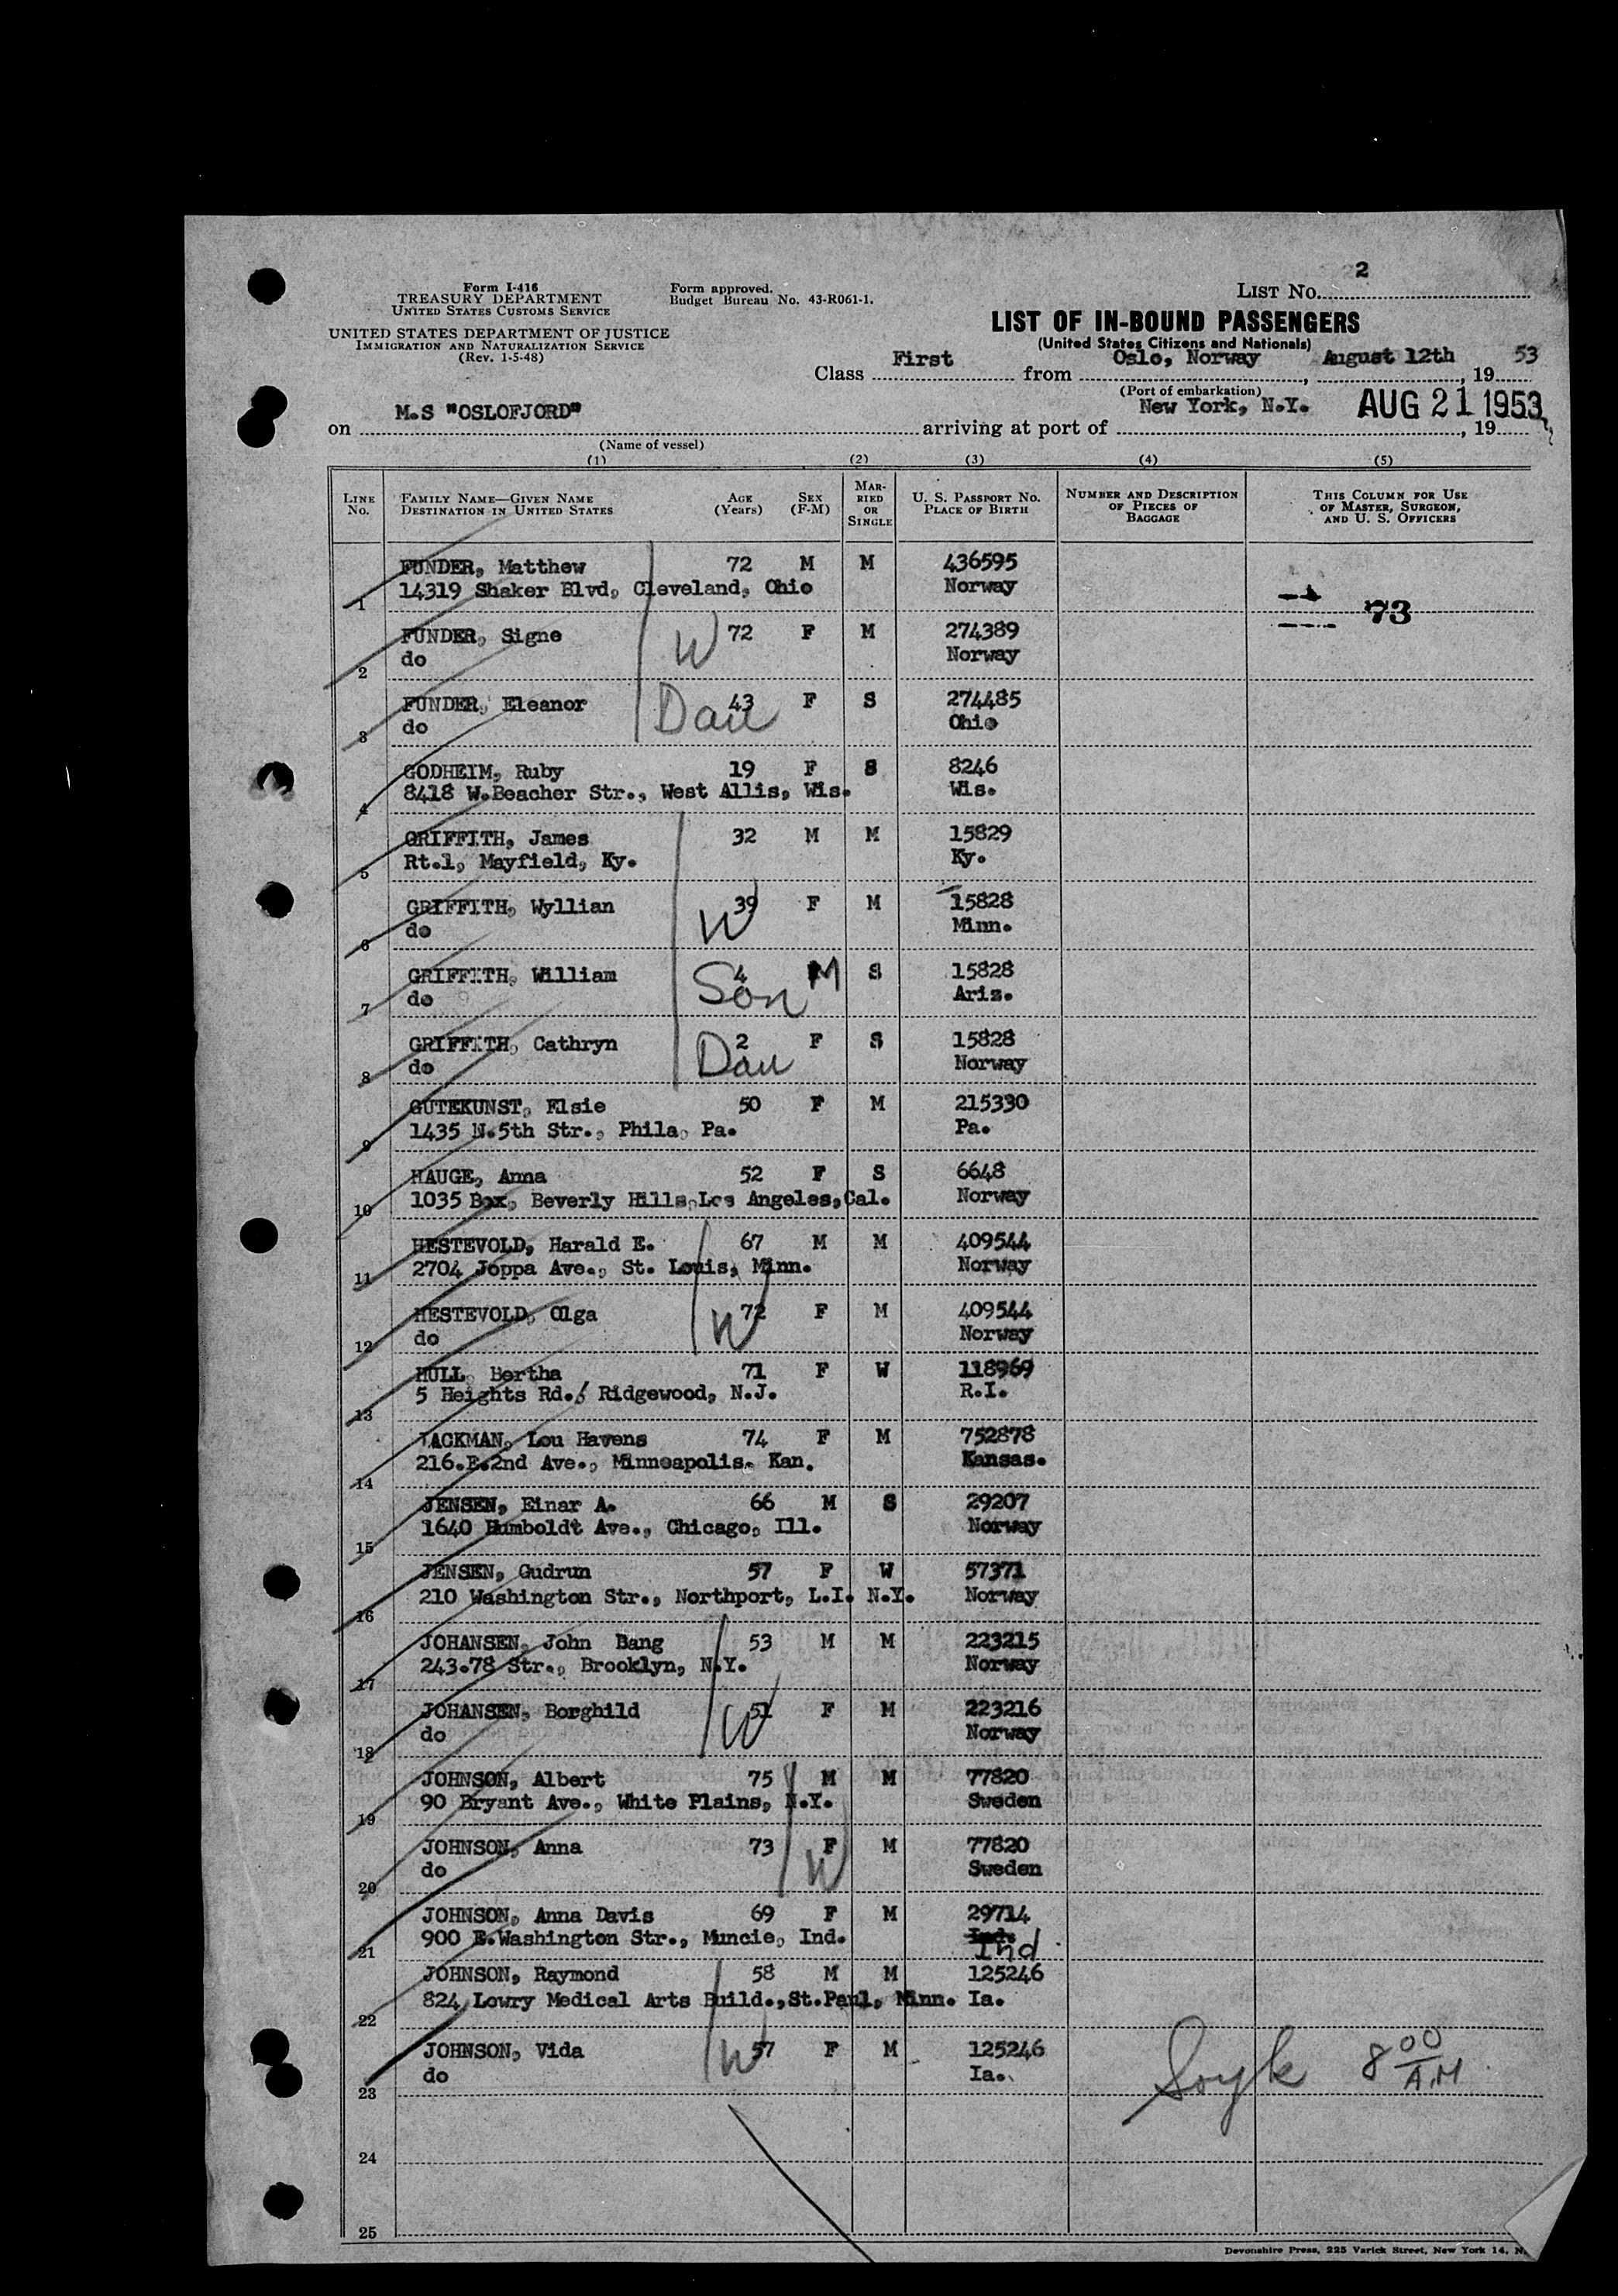 2
Form I-416
TREASURY DEPARTMENT
UNITED STATES CUSTOMS SERVICE
UNITED STATES DEPARTMENT OF JUSTICE
IMMIGRATION AND NATURALIZATION SERVICE
(Rev. 1-5-48)
Form approved.
Budget Bureau No. 43-R061-1.
LIST NO.
LIST OF IN-BOUND PASSENGERS
(United States Citizens and Nationals)
Class First from Oslo, Norway, August 12th, 1953
(Port of embarkation)
on M.S "OSLOFJORD" arriving at port of New York, N.Y. AUG 21 1953, 19
(Name of vessel)
(1) (2) (3) (4) (5)
LINE NO. FAMILY NAME—GIVEN NAME DESTINATION IN UNITED STATES AGE (Years) SEX (F-M) MARRIED OR SINGLE U. S. PASSPORT NO. PLACE OF BIRTH NUMBER AND DESCRIPTION OF PIECES OF BAGGAGE THIS COLUMN FOR USE OF MASTER, SURGEON, AND U. S. OFFICERS
FUNDER, Matthew 72 M M 436595
1 14319 Shaker Blvd, Cleveland, Ohio Norway
73
FUNDER, Signe W 72 F M 274389
2 do Norway
FUNDER, Eleanor Dau 43 F S 274485
3 do Ohio
GODHEIM, Ruby 19 F S 8246
4 8418 W.Beacher Str., West Allis, Wis. Wis.
GRIFFITH, James 32 M M 15829
5 Rt.1, Mayfield, Ky. Ky.
GRIFFITH, Wyllian W 39 F M 15828
6 do Minn.
GRIFFITH, William Son 4 M S 15828
7 do Ariz.
GRIFFITH, Cathryn Dau 2 F S 15828
8 do Norway
GUTEKUNST, Elsie 50 F M 215330
9 1435 N.5th Str., Phila, Pa. Pa.
HAUGE, Anna 52 F S 6648
10 1035 Box, Beverly Hills,Los Angeles,Cal. Norway
HESTEVOLD, Harald E. 67 M M 409544
11 2704 Joppa Ave., St. Louis, Minn. Norway
HESTEVOLD, Olga W 72 F M 409544
12 do Norway
HULL, Bertha 71 F W 118969
13 5 Heights Rd., Ridgewood, N.J. R.I.
JACKMAN, Lou Havens 74 F M 752878
14 216.E.2nd Ave., Minneapolis. Kan. Kansas.
JENSEN, Einar A. 66 M S 29207
15 1640 Humboldt Ave., Chicago, Ill. Norway
JENSEN, Gudrun 57 F W 57371
16 210 Washington Str., Northport, L.I. N.Y. Norway
JOHANSEN, John Bang 53 M M 223215
17 243.78 Str., Brooklyn, N.Y. Norway
JOHANSEN, Borghild W 51 F M 223216
18 do Norway
JOHNSON, Albert 75 M M 77820
19 90 Bryant Ave., White Plains, N.Y. Sweden
JOHNSON, Anna 73 F W M 77820
20 do Sweden
JOHNSON, Anna Davis 69 F M 29714
21 900 E.Washington Str., Muncie, Ind. Ind. Ind
JOHNSON, Raymond 58 M M 125246
22 824 Lowry Medical Arts Build.,St.Paul, Minn. Ia.
JOHNSON, Vida W 57 F M 125246
23 do Ia.
8 00 A.M
24
25
Devonshire Press, 225 Varick Street, New York 14, N.